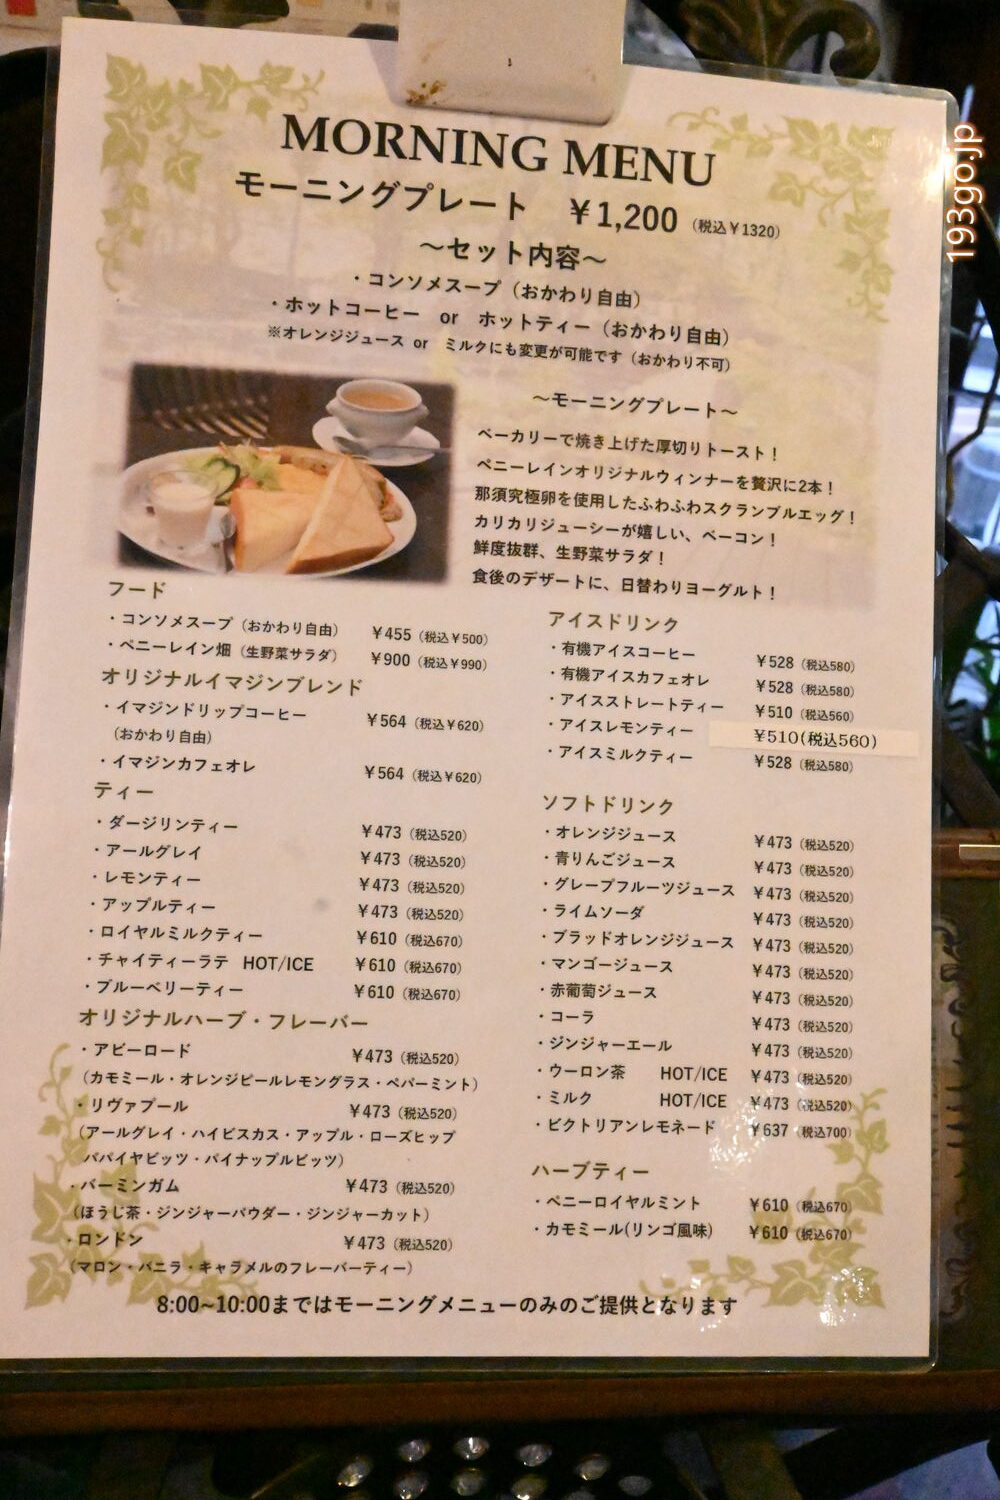 MORNING MENU
モーニングプレート ￥1,200 (税込￥1320)
～セット内容～
・コンソメスープ（おかわり自由）
・ホットコーヒー or ホットティー（おかわり自由）
※オレンジジュース or ミルクにも変更が可能です（おかわり不可）
～モーニングプレート～
ベーカリーで焼き上げた厚切りトースト！
ペニーレインオリジナルウィンナーを贅沢に2本！
那須究極卵を使用したふわふわスクランブルエッグ！
カリカリジューシーが嬉しい、ベーコン！
鮮度抜群、生野菜サラダ！
食後のデザートに、日替わりヨーグルト！
フード
・コンソメスープ（おかわり自由） ￥455（税込￥500）
・ペニーレイン畑（生野菜サラダ） ￥900（税込￥990）
オリジナルイマジンブレンド
・イマジンドリップコーヒー ￥564（税込￥620）
（おかわり自由）
・イマジンカフェオレ ￥564（税込￥620）
ティー
・ダージリンティー ￥473（税込520）
・アールグレイ ￥473（税込520）
・レモンティー ￥473（税込520）
・アップルティー ￥473（税込520）
・ロイヤルミルクティー ￥610（税込670）
・チャイティーラテ HOT/ICE ￥610（税込670）
・ブルーベリーティー ￥610（税込670）
オリジナルハーブ・フレーバー
・アビーロード ￥473（税込520）
（カモミール・オレンジピールレモングラス・ペパーミント）
・リヴァプール ￥473（税込520）
（アールグレイ・ハイビスカス・アップル・ローズヒップ
パパイヤビッツ・パイナップルビッツ）
・バーミンガム ￥473（税込520）
（ほうじ茶・ジンジャーパウダー・ジンジャーカット）
・ロンドン ￥473（税込520）
（マロン・バニラ・キャラメルのフレーバーティー）
アイスドリンク
・有機アイスコーヒー ￥528（税込580）
・有機アイスカフェオレ ￥528（税込580）
・アイスストレートティー ￥510（税込560）
・アイスレモンティー ￥510(税込560)
・アイスミルクティー ￥528（税込580）
ソフトドリンク
・オレンジジュース ￥473（税込520）
・青りんごジュース ￥473（税込520）
・グレープフルーツジュース ￥473（税込520）
・ライムソーダ ￥473（税込520）
・ブラッドオレンジジュース ￥473（税込520）
・マンゴージュース ￥473（税込520）
・赤葡萄ジュース ￥473（税込520）
・コーラ ￥473（税込520）
・ジンジャーエール ￥473（税込520）
・ウーロン茶 HOT/ICE ￥473（税込520）
・ミルク HOT/ICE ￥473（税込520）
・ビクトリアンレモネード ￥637（税込700）
ハーブティー
・ペニーロイヤルミント ￥610（税込670）
・カモミール(リンゴ風味) ￥610（税込670）
8:00~10:00まではモーニングメニューのみのご提供となります
193go.jp